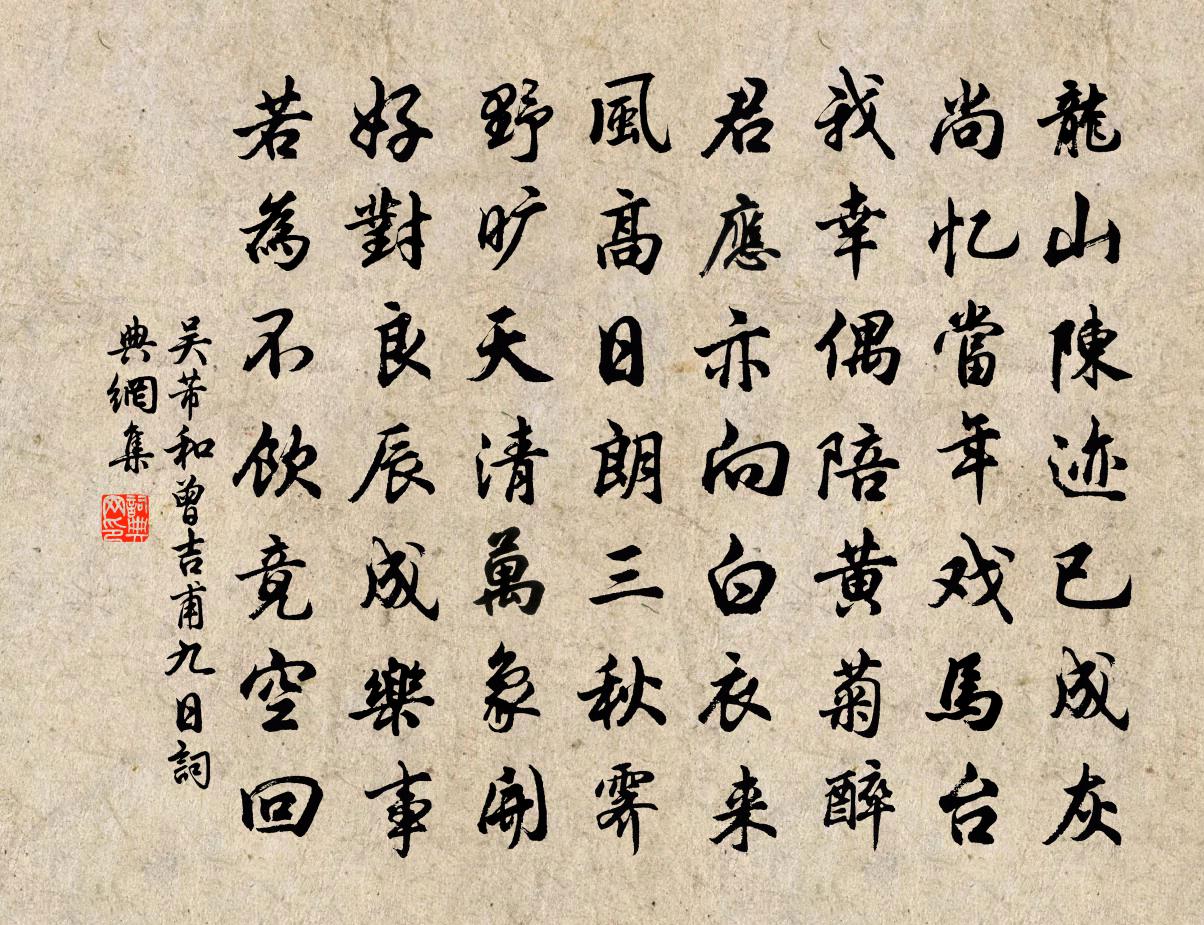 龍山陳迹已成灰
尚忆當年戏馬台
我幸偶陪黄菊醉
君應亦向白衣来
風高日朗三秋霽
野旷天清萬象開
好對良辰成樂事
若為不飲竟空回
吴芾和曾吉甫九日詞
典網集
詞典
网印